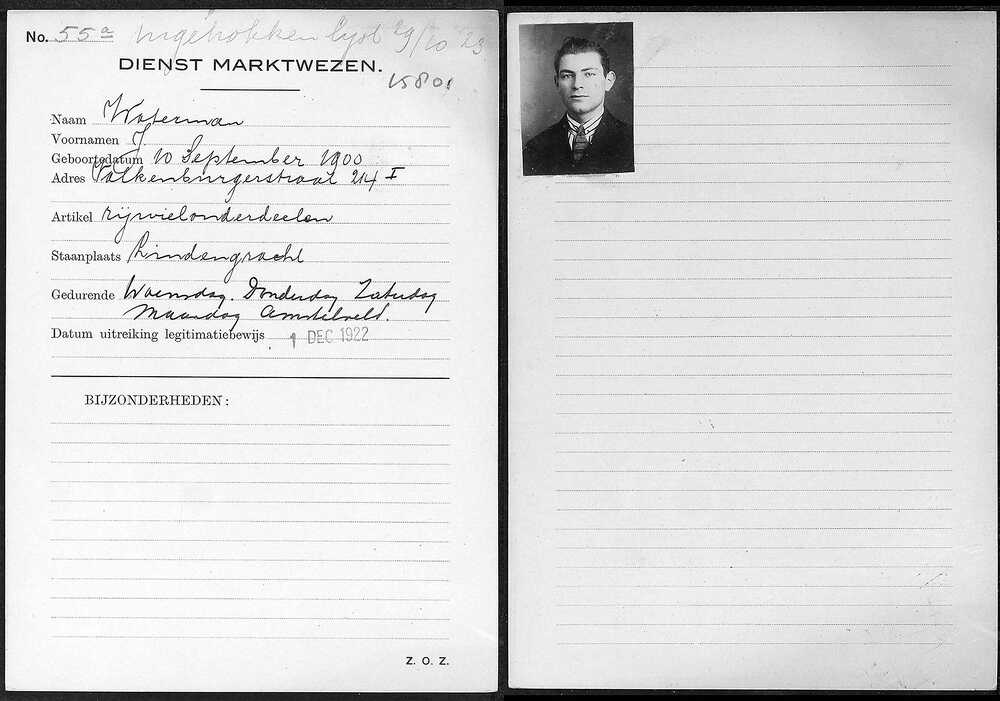 No. 55a Ingetrokken 29/10 23
DIENST MARKTWEZEN.
15801
Naam Waterman
Voornamen J.
Geboortedatum 10 September 1900
Adres Valkenburgerstraat 214 I
Artikel rijwielonderdeelen
Staanplaats Lindengracht
Gedurende Woensdag. Donderdag Zaterdag
Maandag Amstelveld.
Datum uitreiking legitimatiebewijs 1 DEC 1922
BIJZONDERHEDEN:
Z. O. Z.